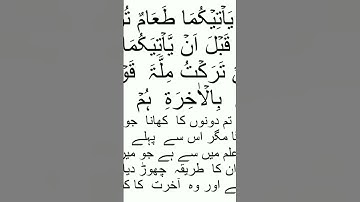 يَاۡتِيۡكُمَا طَعَامٌ
قَبۡلَ اَنۡ يَّاۡتِيَكُمَا
تَرَكۡتُ مِلَّةَ
بِالۡاٰخِرَةِ هُمۡ
تم دونوں کا کھانا جو
مگر اس سے پہلے
علم میں سے ہے جو
کا طریقہ چھوڑ دیا
اور وہ آخرت کا